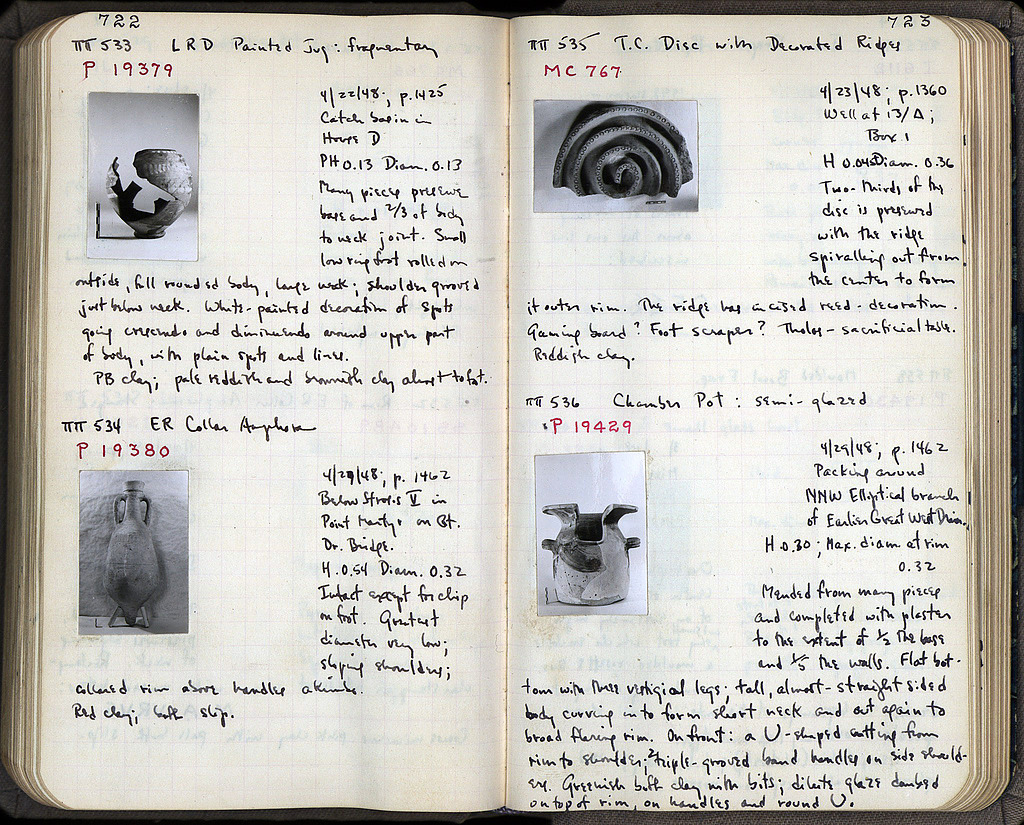 722
ΠΠ 533 LRD Painted Jug: fragmentary
P 19379
4/22/48; p. 1425
Catch basin in
House D
PH 0.13 Diam. 0.13
Many pieces preserve
base and 2/3 of body
to neck joint. Small
low ring foot rolled on
outside, full rounded body, large neck; shoulder grooved
just below neck. White-painted decoration of spots
going crescendo and diminuendo around upper part
of body, with plain spots and lines.
PB clay; pale reddish and brownish clay almost to foot.
ΠΠ 534 ER Collar Amphora
P 19380
p. 1462
Below Strosis V in
Point on Gt.
Dr. Bridge.
H. 0.54 Diam. 0.32
Intact except for chip
on foot. Greatest
diameter very low;
sloping shoulders;
collared rim above handles akimbo.
Red clay, buff slip.
723
ΠΠ 535 T.C. Disc with Decorated Ridges
MC 767
4/23/48; p. 1360
Well at 13/Δ;
Box 1
H Diam. 0.36
Two-thirds of the
disc is preserved
with the ridge
spiralling out from
the center to form
it outer rim. The ridge has incised reed-decoration.
Gaming board? Foot scraper? Tholos-sacrificial table.
Reddish clay.
ΠΠ 536 Chamber Pot: semi-glazed
P 19429
p. 1462
Packing around
NNW Elliptical branch
of Earlier Great West Drain.
H. 0.30; Max. diam at rim
0.32
Mended from many pieces
and completed with plaster
to the extent of 1/2 the base
and 1/5 the walls. Flat bot-
tom with three vestigial legs; tall, almost-straight sided
body curving in to form short neck and out again to
broad flaring rim. On front: a U-shaped cutting from
rim to shoulder; 2 triple-grooved band handles on side should-
ers. Greenish buff clay with bits; dilute glaze daubed
on top of rim, on handles and round U.